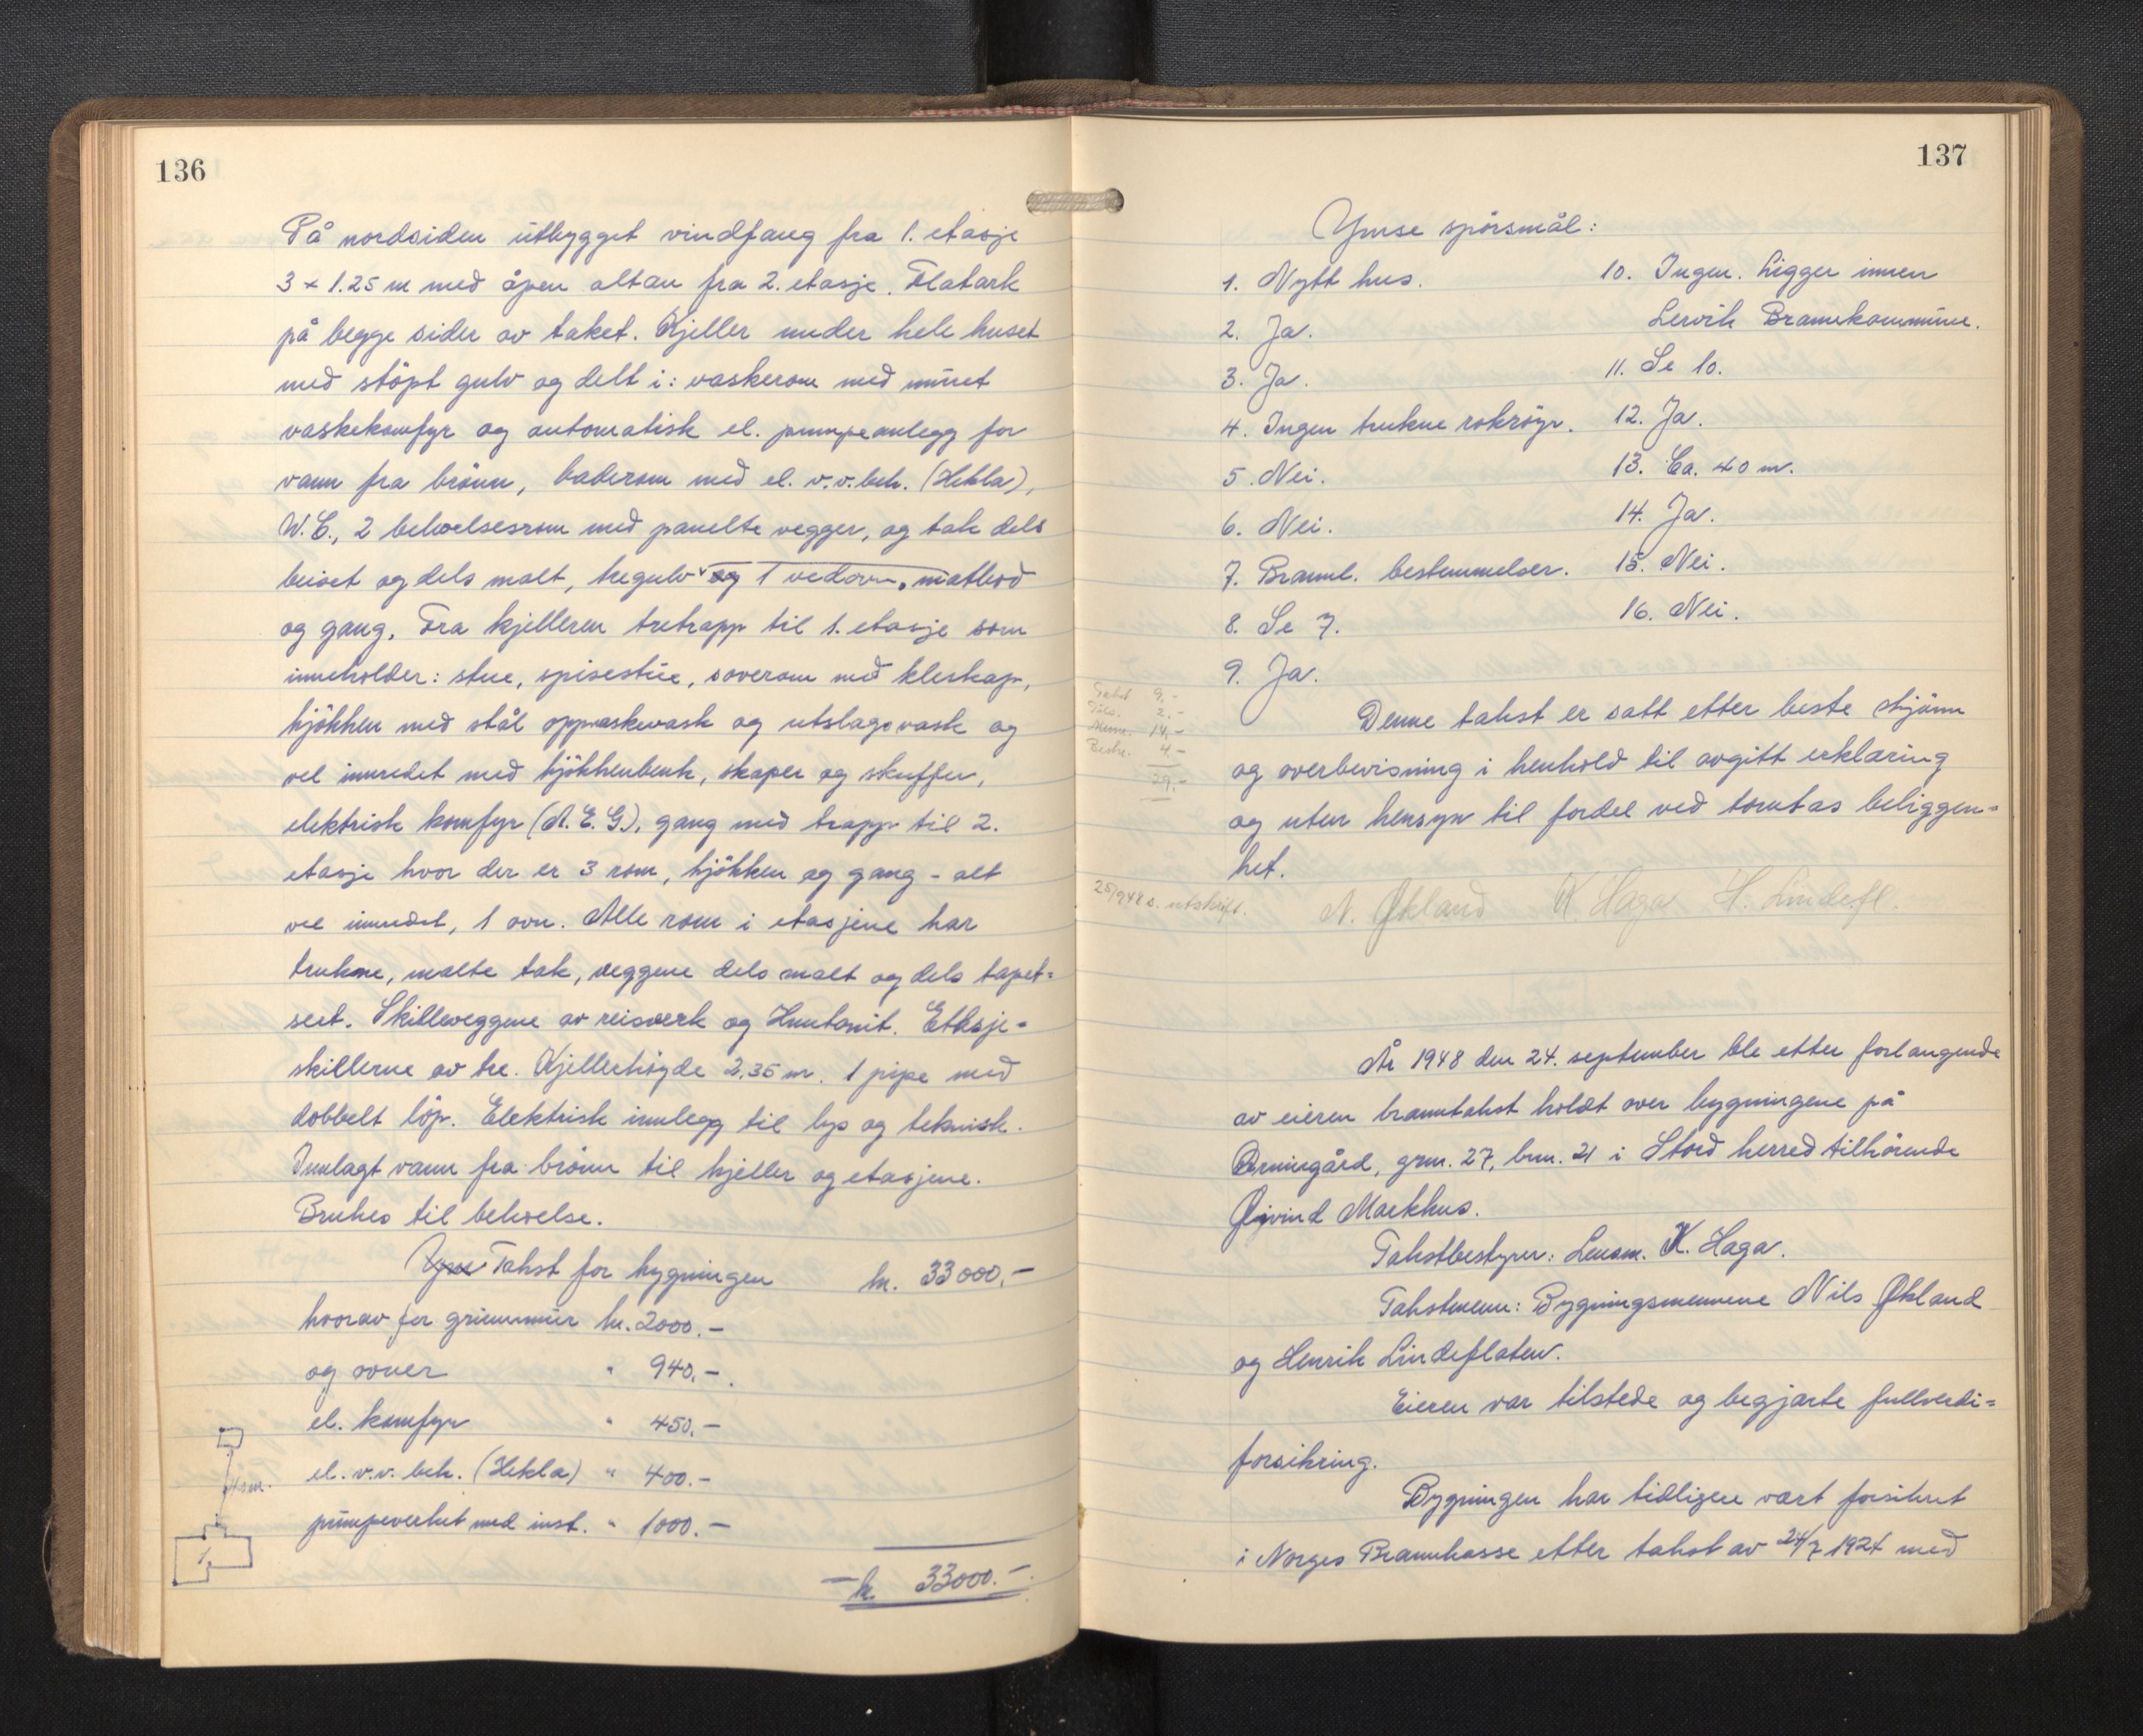 136
På nordsiden utbygget vindfang fra 1. etasje
3 x 1.25 m med åpen altan fra 2. etasje. Flatark
på begge sider av taket. Kjeller under hele huset
med støpt gulv og delt i: vaskerom med muret
vaskekomfyr og automatisk el. pumpeanlegg for
vann fra brönn, baderom med el. v.v.beh. (Hekla),
W.C., 2 beboelsesrom med panelte vegger, og tak dels
beiset og dels malt, tregulv og 1 vedovn, matbod
og gang. Fra kjelleren tretrapp til 1. etasje som
inneholder: stue, spisestue, soverom med kleskap,
kjökken med stål oppvaskevask og utslagsvask og
vel innredet med kjökkenbenk, skaper og skuffer,
elektrisk komfyr (A.E.G.), gang med trapp til 2.
etasje hvor der er 3 rom, kjökken og gang - alt
vel innredet, 1 ovn. Alle rom i etasjene har
trukne, malte tak, veggene dels malt og dels tapet=
sert. Skilleveggene av reisverk og Huntonit. Etasje=
skillerne av tre. Kjellerhöyde 2.35 m. 1 pipe med
dobbelt löp. Elektrisk innlegg til lys og teknisk.
Innlagt vann fra brönn til kjeller og etasjene.
Brukes til beboelse.
Takst for bygningen kr. 33000.-
hvorav for grunnmur kr. 2000.-
og ovner " 940.-
el. komfyr " 450.-
el. v.v. beh. (Hekla) " 400.-
pumpeverket med inst. " 1000.-
- kr. 33000.-
1.
137
Ymse spörsmål:
1. Nytt hus.
2. Ja.
3. Ja.
4. Ingen trukne rokröyr.
5. Nei.
6. Nei.
7. Brannl. bestemmelser.
8. Se 7.
9. Ja.
10. Ingen. Ligger innen
Lervik Brannkommune.
11. Se 10.
12. Ja.
13. Ca. 40 m.
14. Ja.
15. Nei.
16. Nei.
Takst 9.-
2.-
14.-
4.-
29.-
Denne takst er satt etter beste skjönn
og overbevisning i henhold til avgitt erklæring
og uten hensyn til fordel ved tomtas beliggen=
het.
25/9 48 s. utskrift.
N. Økland K Haga H. Lindefl.
År 1948 den 24. september ble etter forlangende
av eieren branntakst holdt over bygningene på
gnr. 27, bnr. 21 i Stord herred tilhörende
Øyvind Markhus.
Takstbestyrer: Lensm. K. Haga.
Takstmenn: Bygningsmennene Nils Økland
og Henrik Lindeflaten.
Eieren var tilstede og begjærte fullverdi=
forsikring.
Bygningen har tidligere vært forsikret
i Norges Brannkasse etter takst av 24/7 1927 med